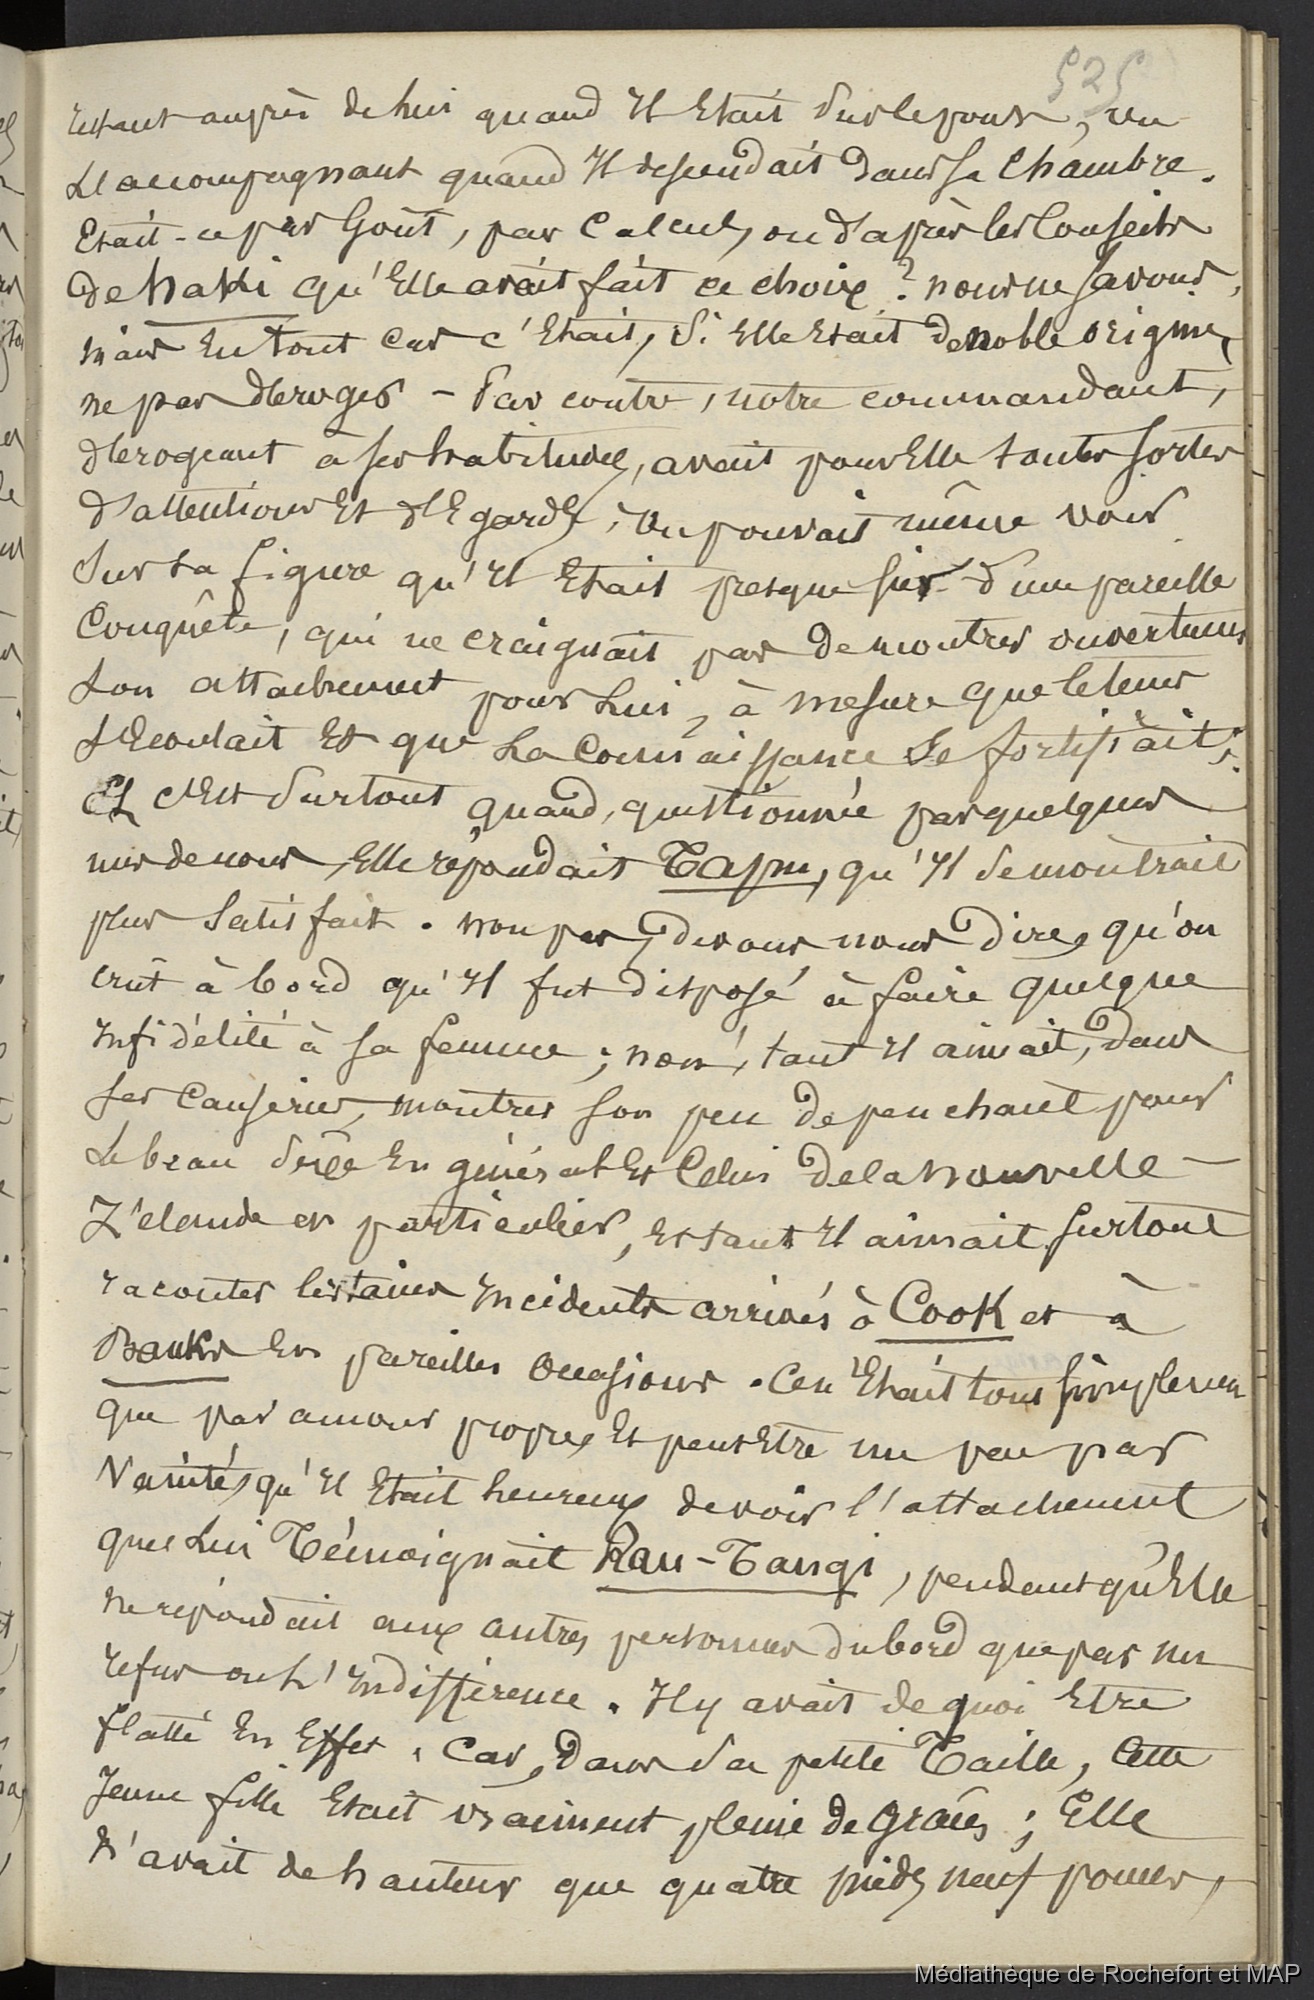 525
restant auprès de lui quand Il Etait sur le pont, ou
L'accompagnant quand Il descendait dans sa Chambre.
Etait-ce par Goût, par Calcul, ou d'après les Conseils
de Naki qu'Elle avait fait ce choix ? nous ne savons,
mais En tout cas c'Etait, si Elle Etait de noble origine,
ne pas dEroger - Par contre, notre commandant,
dErogeant à ses habitudes, avait pour Elle toutes sortes
d'attentions Et d'Egards ; On pouvait même voir
sur sa figure qu'Il Etait presque fier d'une pareille
Conquête, qui ne craignait pas de montrer ouvertement
son attachement pour Lui, à mesure que le tems
s'Ecoulait Et que la Connaissance se fortifiait ;
Et c'Est surtout quand, questionnée par quelques
uns de nous, Elle répondait Tapu, qu'Il se montrait
plus satisfait. non pas, devons nous dire, qu'on
crût à bord qu'Il fut disposé à faire quelque
Infidélité à sa femme ; non, tant Il aimait, dans
ses Causeries, montrer son peu de penchant pour
Le beau sexe En général Et Celui de la Nouvelle -
Zélande en particulier, Et tant Il aimait surtout
raconter Certains Incidents arrivés à Cook et à
Banks En pareilles Occasions. Ce n'Etait tout simplement
que par amour propre Et peut Etre un peu par
Vanité, qu'Il Etait heureux de voir l'attachement
que Lui Témoignait Rau-Tangi, pendant qu'Elle
ne répondait aux autres personnes du bord que par un
refus ou L'Indifférence. Il y avait de quoi Etre
flatté En Effet, Car, dans sa petite Taille, Cette
Jeune fille Etait vraiment pleine de Grâces ; Elle
N'avait de hauteur que quatre pieds neuf pouces,
Médiathèque de Rochefort et MAP